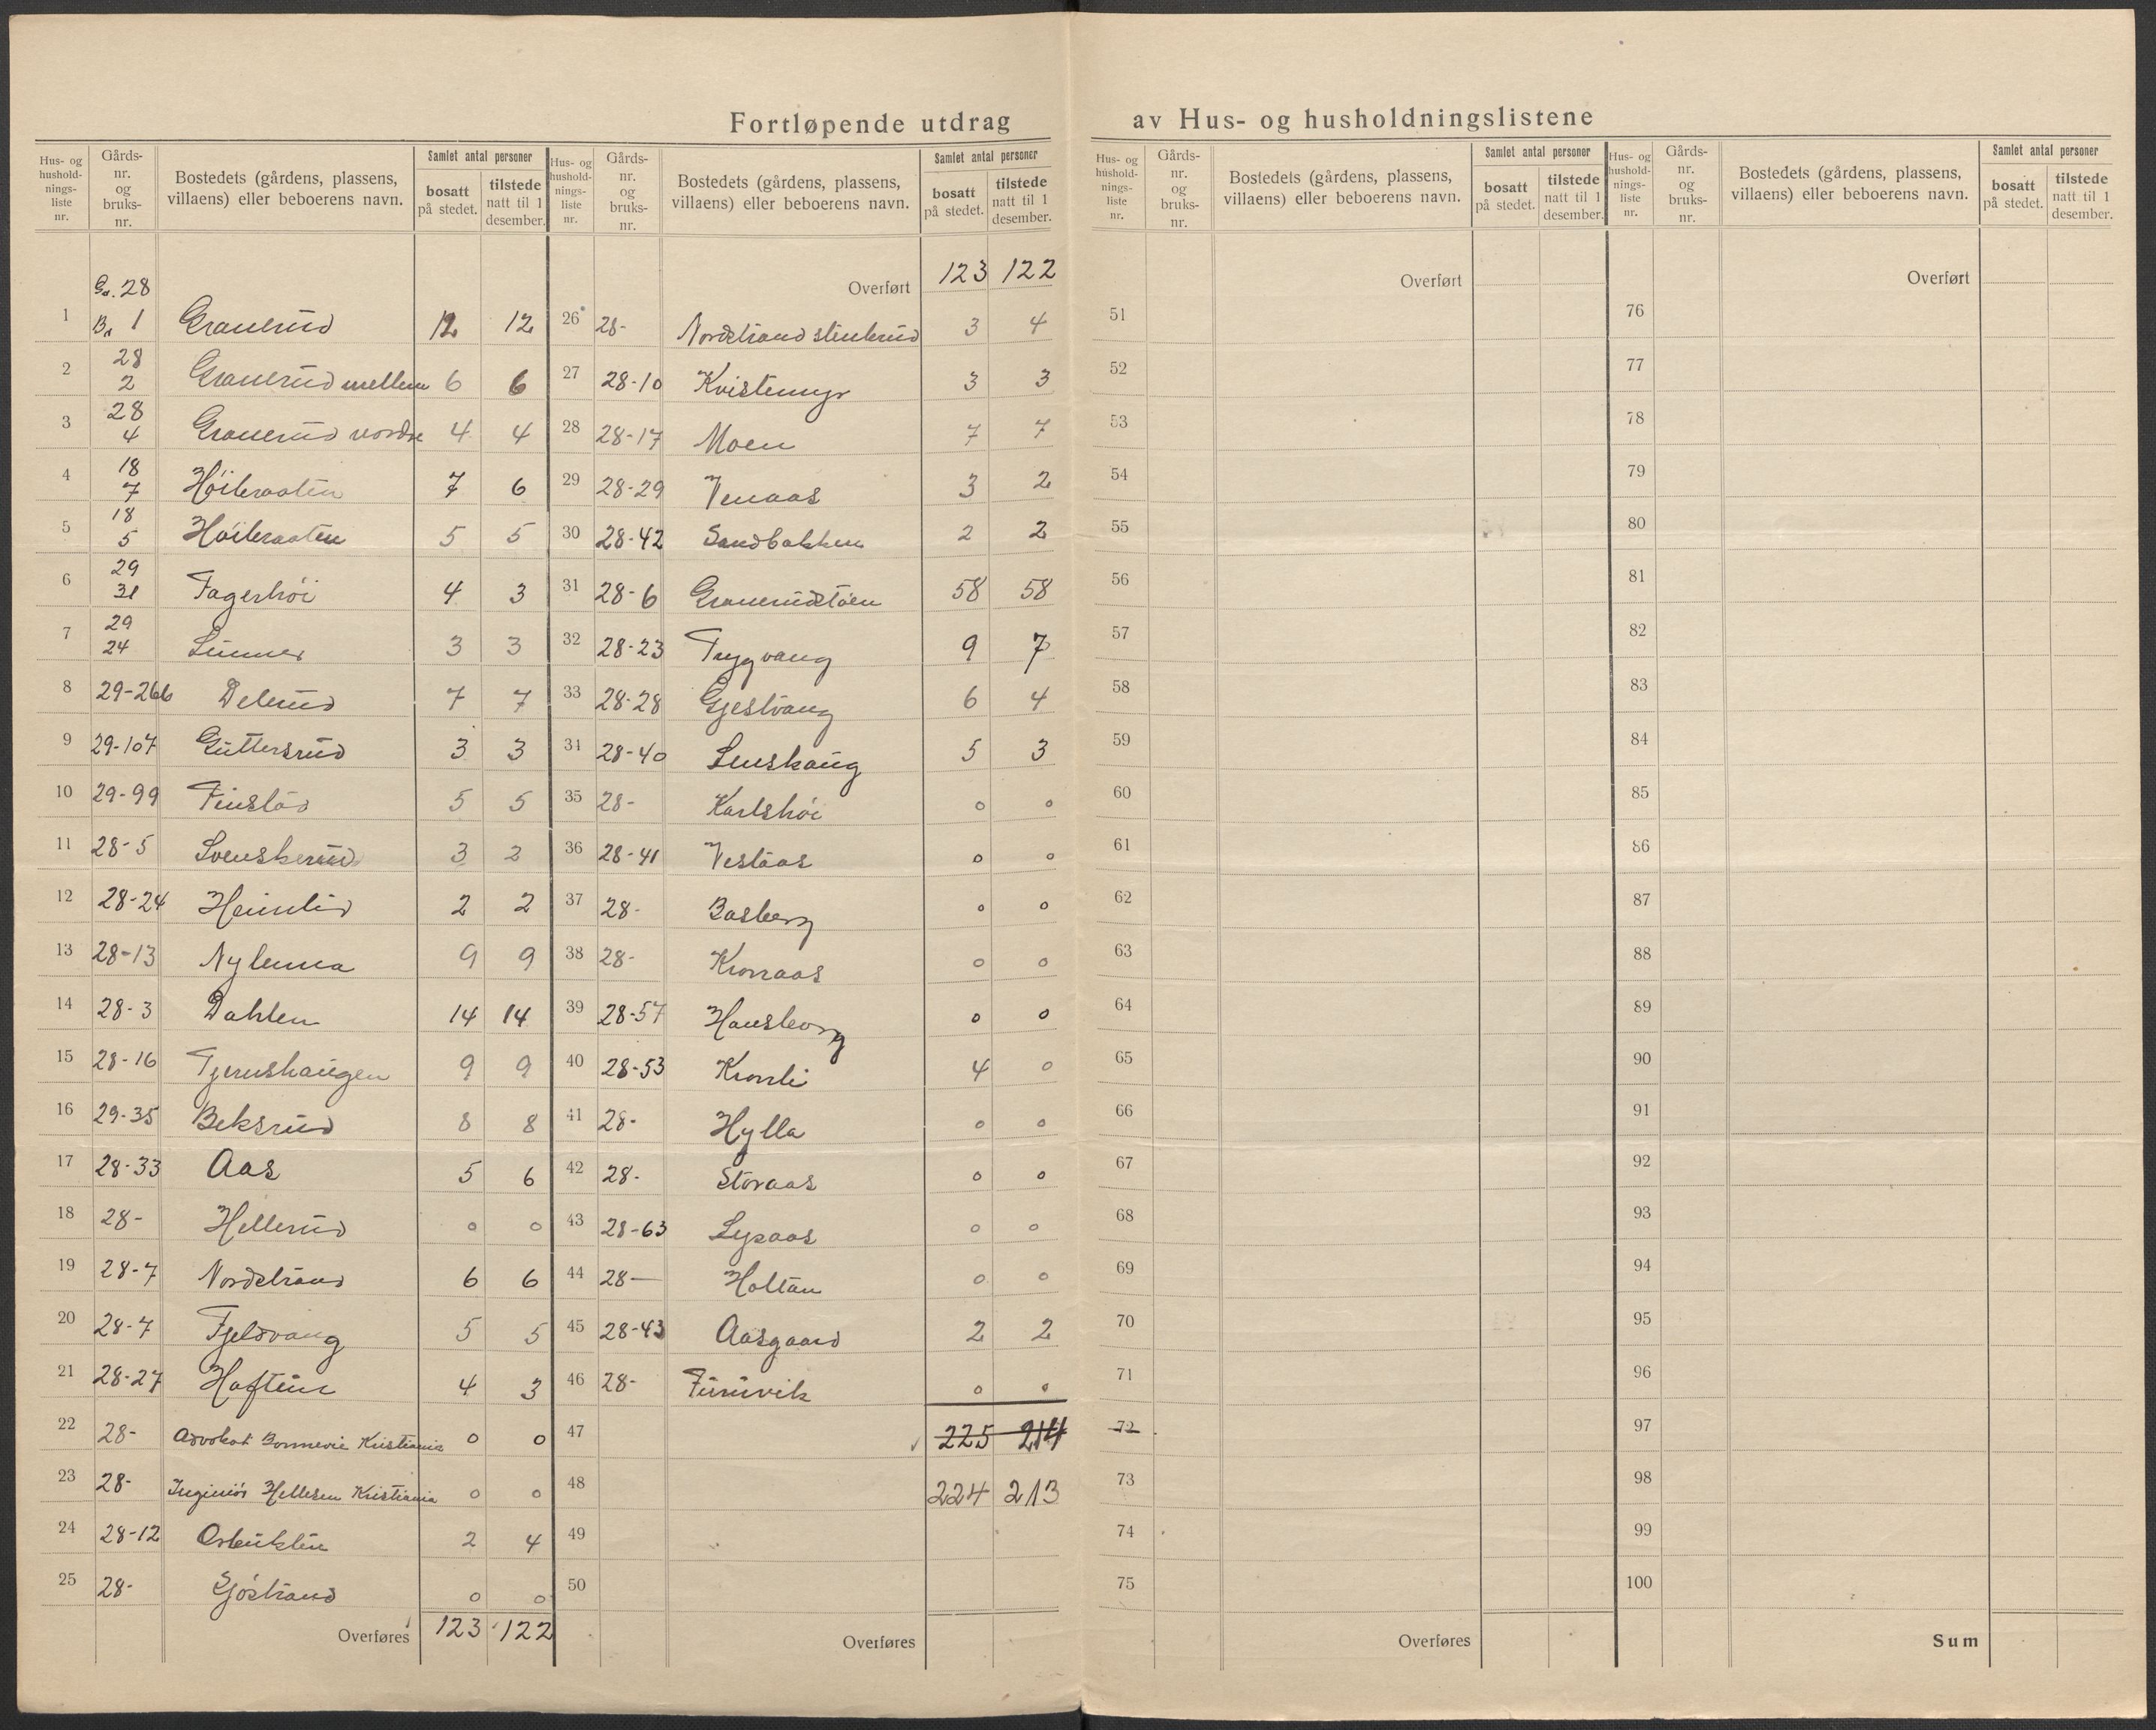 Fortløpende utdrag av Hus- og husholdningslistene
Hus- og hushold-nings-liste nr. Gårds-nr. og bruks-nr. Bostedets (gårdens, plassens, villaens) eller beboerens navn. Samlet antal personer bosatt på stedet. tilstede natt til 1 desember.
Gr. 28
1 Br. 1 Granerud 12 12
2 28 2 Granerud mellem 6 6
3 28 4 Granerud nordre 4 4
4 18 7 Høibraaten 7 6
5 18 5 Høibraaten 5 5
6 29 31 Fagerhøi 4 3
7 29 24 3 3
8 29-26b Delerud 7 7
9 29-107 Guttersrud 3 3
10 29-99 Finstad 5 5
11 28-5 Svenskerud 3 2
12 28-24 Heimlid 2 2
13 28-13 Nylenna 9 9
14 28-3 Dahlen 14 14
15 28-16 Tjernshaugen 9 9
16 29-35 Beksrud 8 8
17 28-33 Aas 5 6
18 28- Hellerud 0 0
19 28-7 Nordstrand 6 6
20 28-7 Fjeldvang 5 5
21 28-27 Haftun 4 3
22 28- Advokat Bonnevie Kristiania 0 0
23 28- Ingeniør Hellesen Kristiania 0 0
24 28-12 2 4
25 28- Sjøstrand 0 0
Overføres 123 122
Hus- og hushold-nings-liste nr. Gårds-nr. og bruks-nr. Bostedets (gårdens, plassens, villaens) eller beboerens navn. Samlet antal personer bosatt på stedet. tilstede natt til 1 desember.
Overført 123 122
26 28- Nordstrand 3 4
27 28-10 Kvistemyr 3 3
28 28-17 Moen 7 7
29 28-29 Venaas 3 2
30 28-42 Sandbakken 2 2
31 28-6 Granerudstøen 58 58
32 28-23 Trygvang 9 7
33 28-28 Gjestvang 6 4
34 28-40 Lenskaug 5 3
35 28- Karlshøi 0 0
36 28-41 Vestaas 0 0
37 28- Basberg 0 0
38 28- Kronaas 0 0
39 28-57 Hansborg 0 0
40 28-53 Kronli 4 0
41 28- Hylla 0 0
42 28- Storaas 0 0
43 28-63 Lysaas 0 0
44 28- Holtan 0 0
45 28-43 Aasgaard 2 2
46 28- Furuvik 0 0
47 225 214
48 224 213
49
50
Overføres
Hus- og hushold-nings-liste nr. Gårds-nr. og bruks-nr. Bostedets (gårdens, plassens, villaens) eller beboerens navn. Samlet antal personer bosatt på stedet. tilstede natt til 1 desember.
Overført
51
52
53
54
55
56
57
58
59
60
61
62
63
64
65
66
67
68
69
70
71
72
73
74
75
Overføres
Hus- og hushold-nings-liste nr. Gårds-nr. og bruks-nr. Bostedets (gårdens, plassens, villaens) eller beboerens navn. Samlet antal personer bosatt på stedet. tilstede natt til 1 desember.
Overført
76
77
78
79
80
81
82
83
84
85
86
87
88
89
90
91
92
93
94
95
96
97
98
99
100
Sum